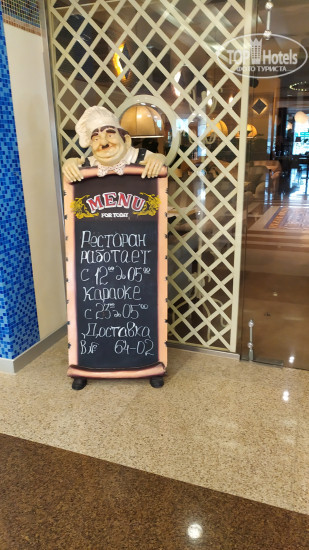 TOPHotels
ФОТО ТУРИСТА
MENU
FOR TODAY
Ресторан
работает
с 12⁰⁰ до 05⁰⁰
Караоке
с 23⁰⁰ до 05⁰⁰
Доставка
64-02